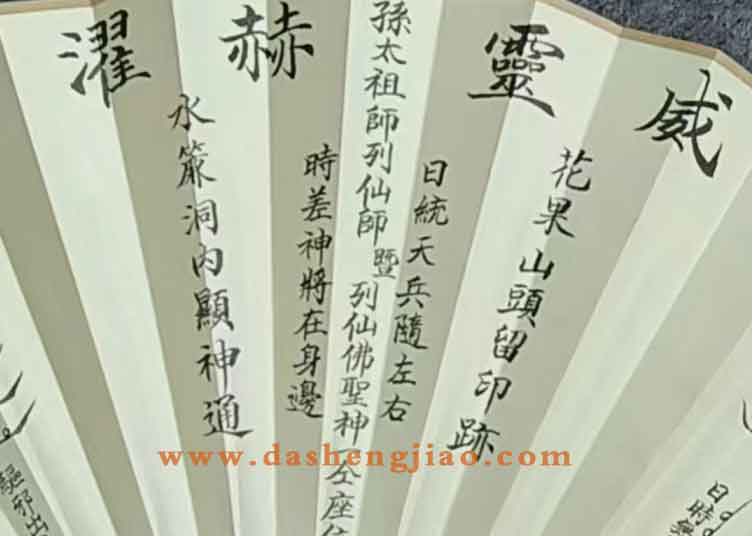 威靈赫濯
日時
花果山頭留印跡
日統天兵隨左右
孫太祖師列仙師暨列仙佛聖神仝座
時差神將在身邊
水簾洞內顯神通
驅邪出
www.dashengjiao.com